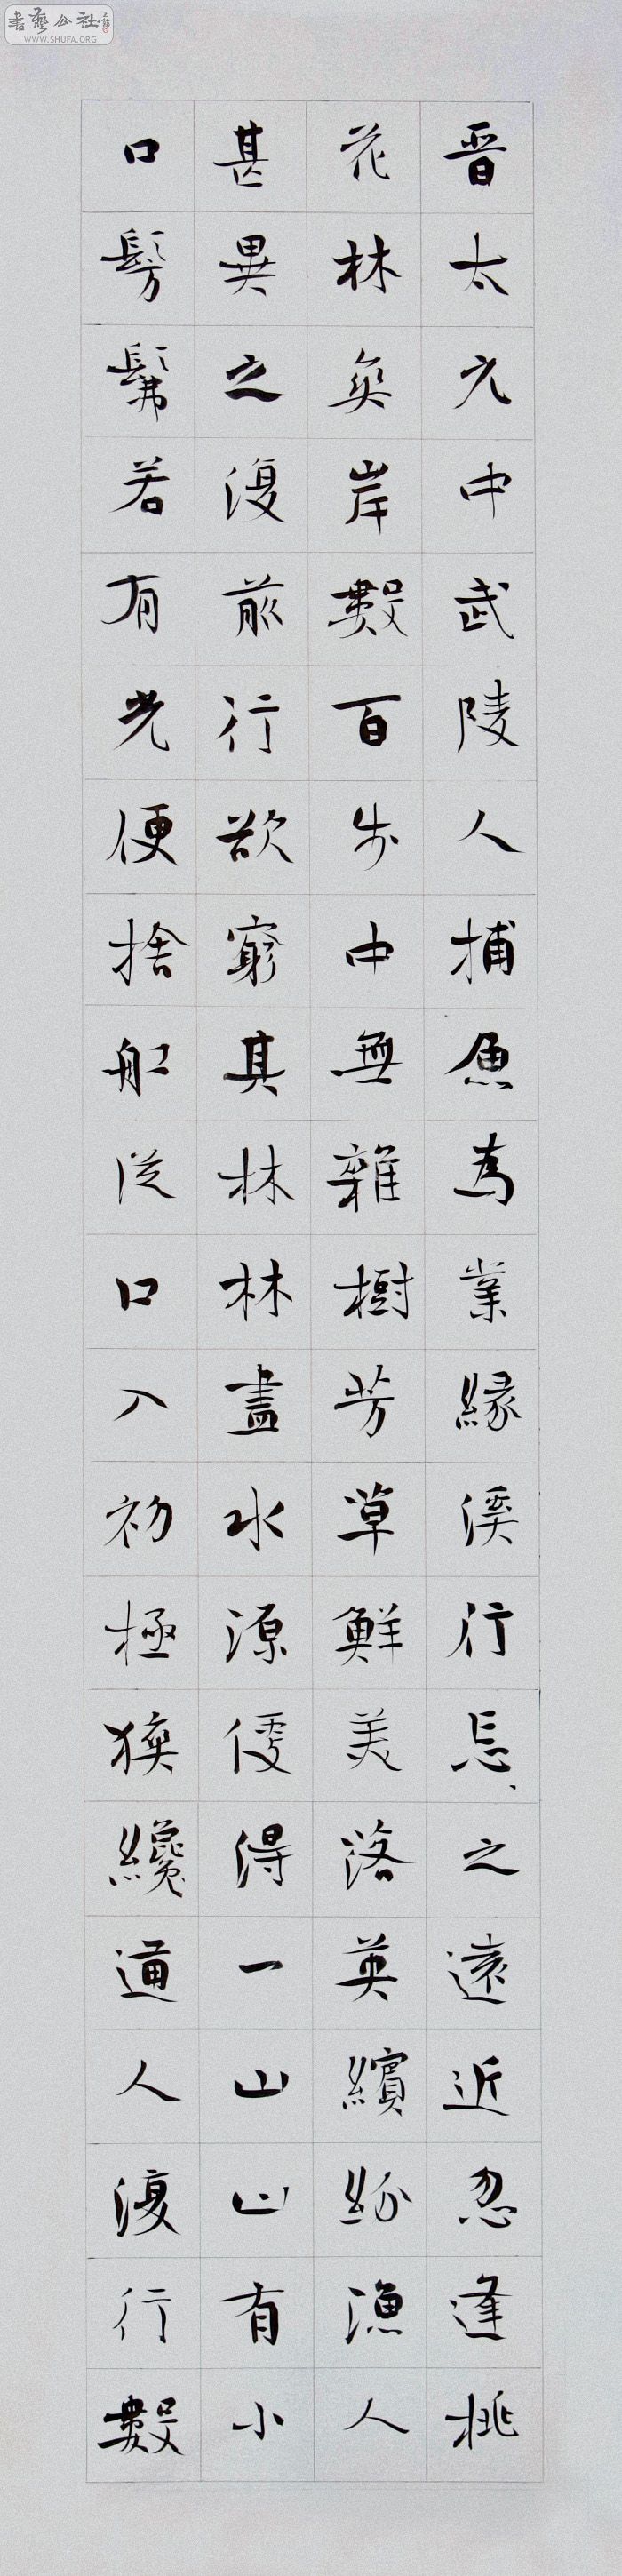 書藝公社
WWW.SHUFA.ORG
晉太元中武陵人捕魚為業緣溪行忘之遠近忽逢桃
花林夾岸數百步中無雜樹芳草鮮美落英繽紛漁人
甚異之復前行欲窮其林林盡水源便得一山山有小
口髣髴若有光便捨船從口入初極狹纔通人復行數